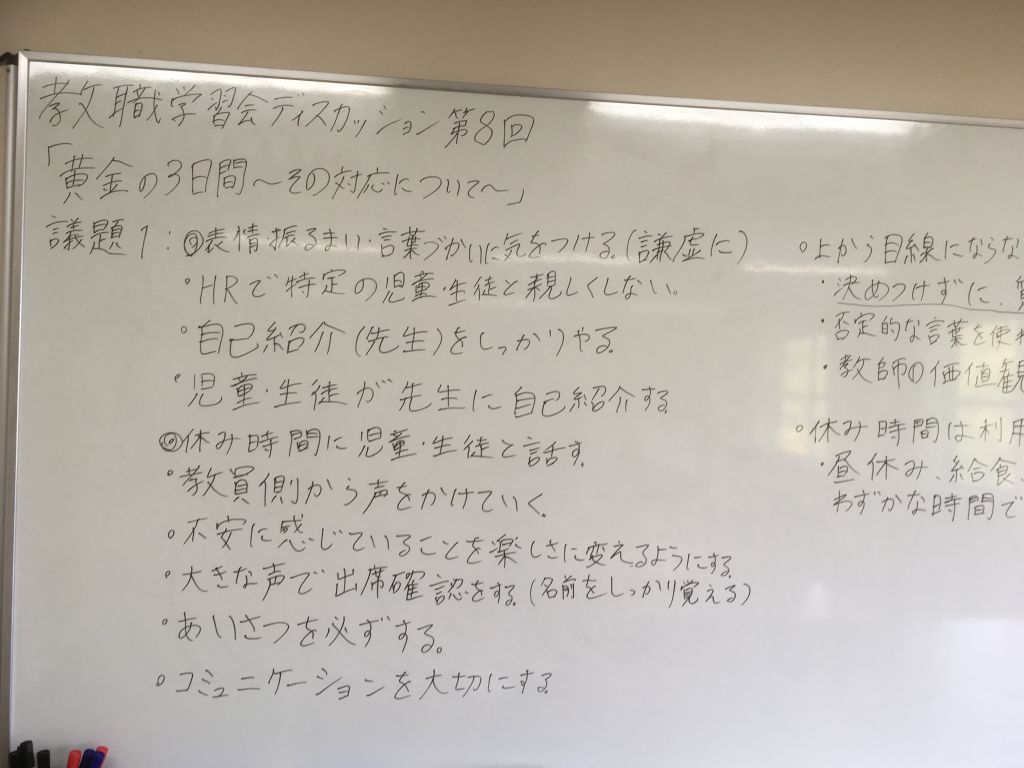 教職学習会ディスカッション第8回
「黄金の3日間〜その対応について〜」
議題1:◎表情・振るまい・言葉づかいに気をつける。(謙虚に)
・HRで特定の児童・生徒と親しくしない。
・自己紹介(先生)をしっかりやる。
・児童・生徒が先生に自己紹介する
◎休み時間に児童・生徒と話す。
・教員側から声をかけていく。
・不安に感じていることを楽しさに変えるようにする。
・大きな声で出席確認をする。(名前をしっかり覚える)
・あいさつを必ずする。
○コミュニケーションを大切にする
○上から目線にならな
・決めつけずに、
・否定的な言葉を使わ
・教師の価値観
○休み時間は利用
・昼休み、給食、
わずかな時間で